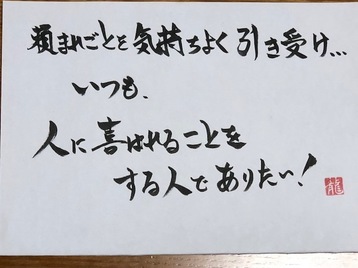 頼まれごとを気持ちよく引き受け…
いつも、
人に喜ばれることを
する人でありたい!
龍